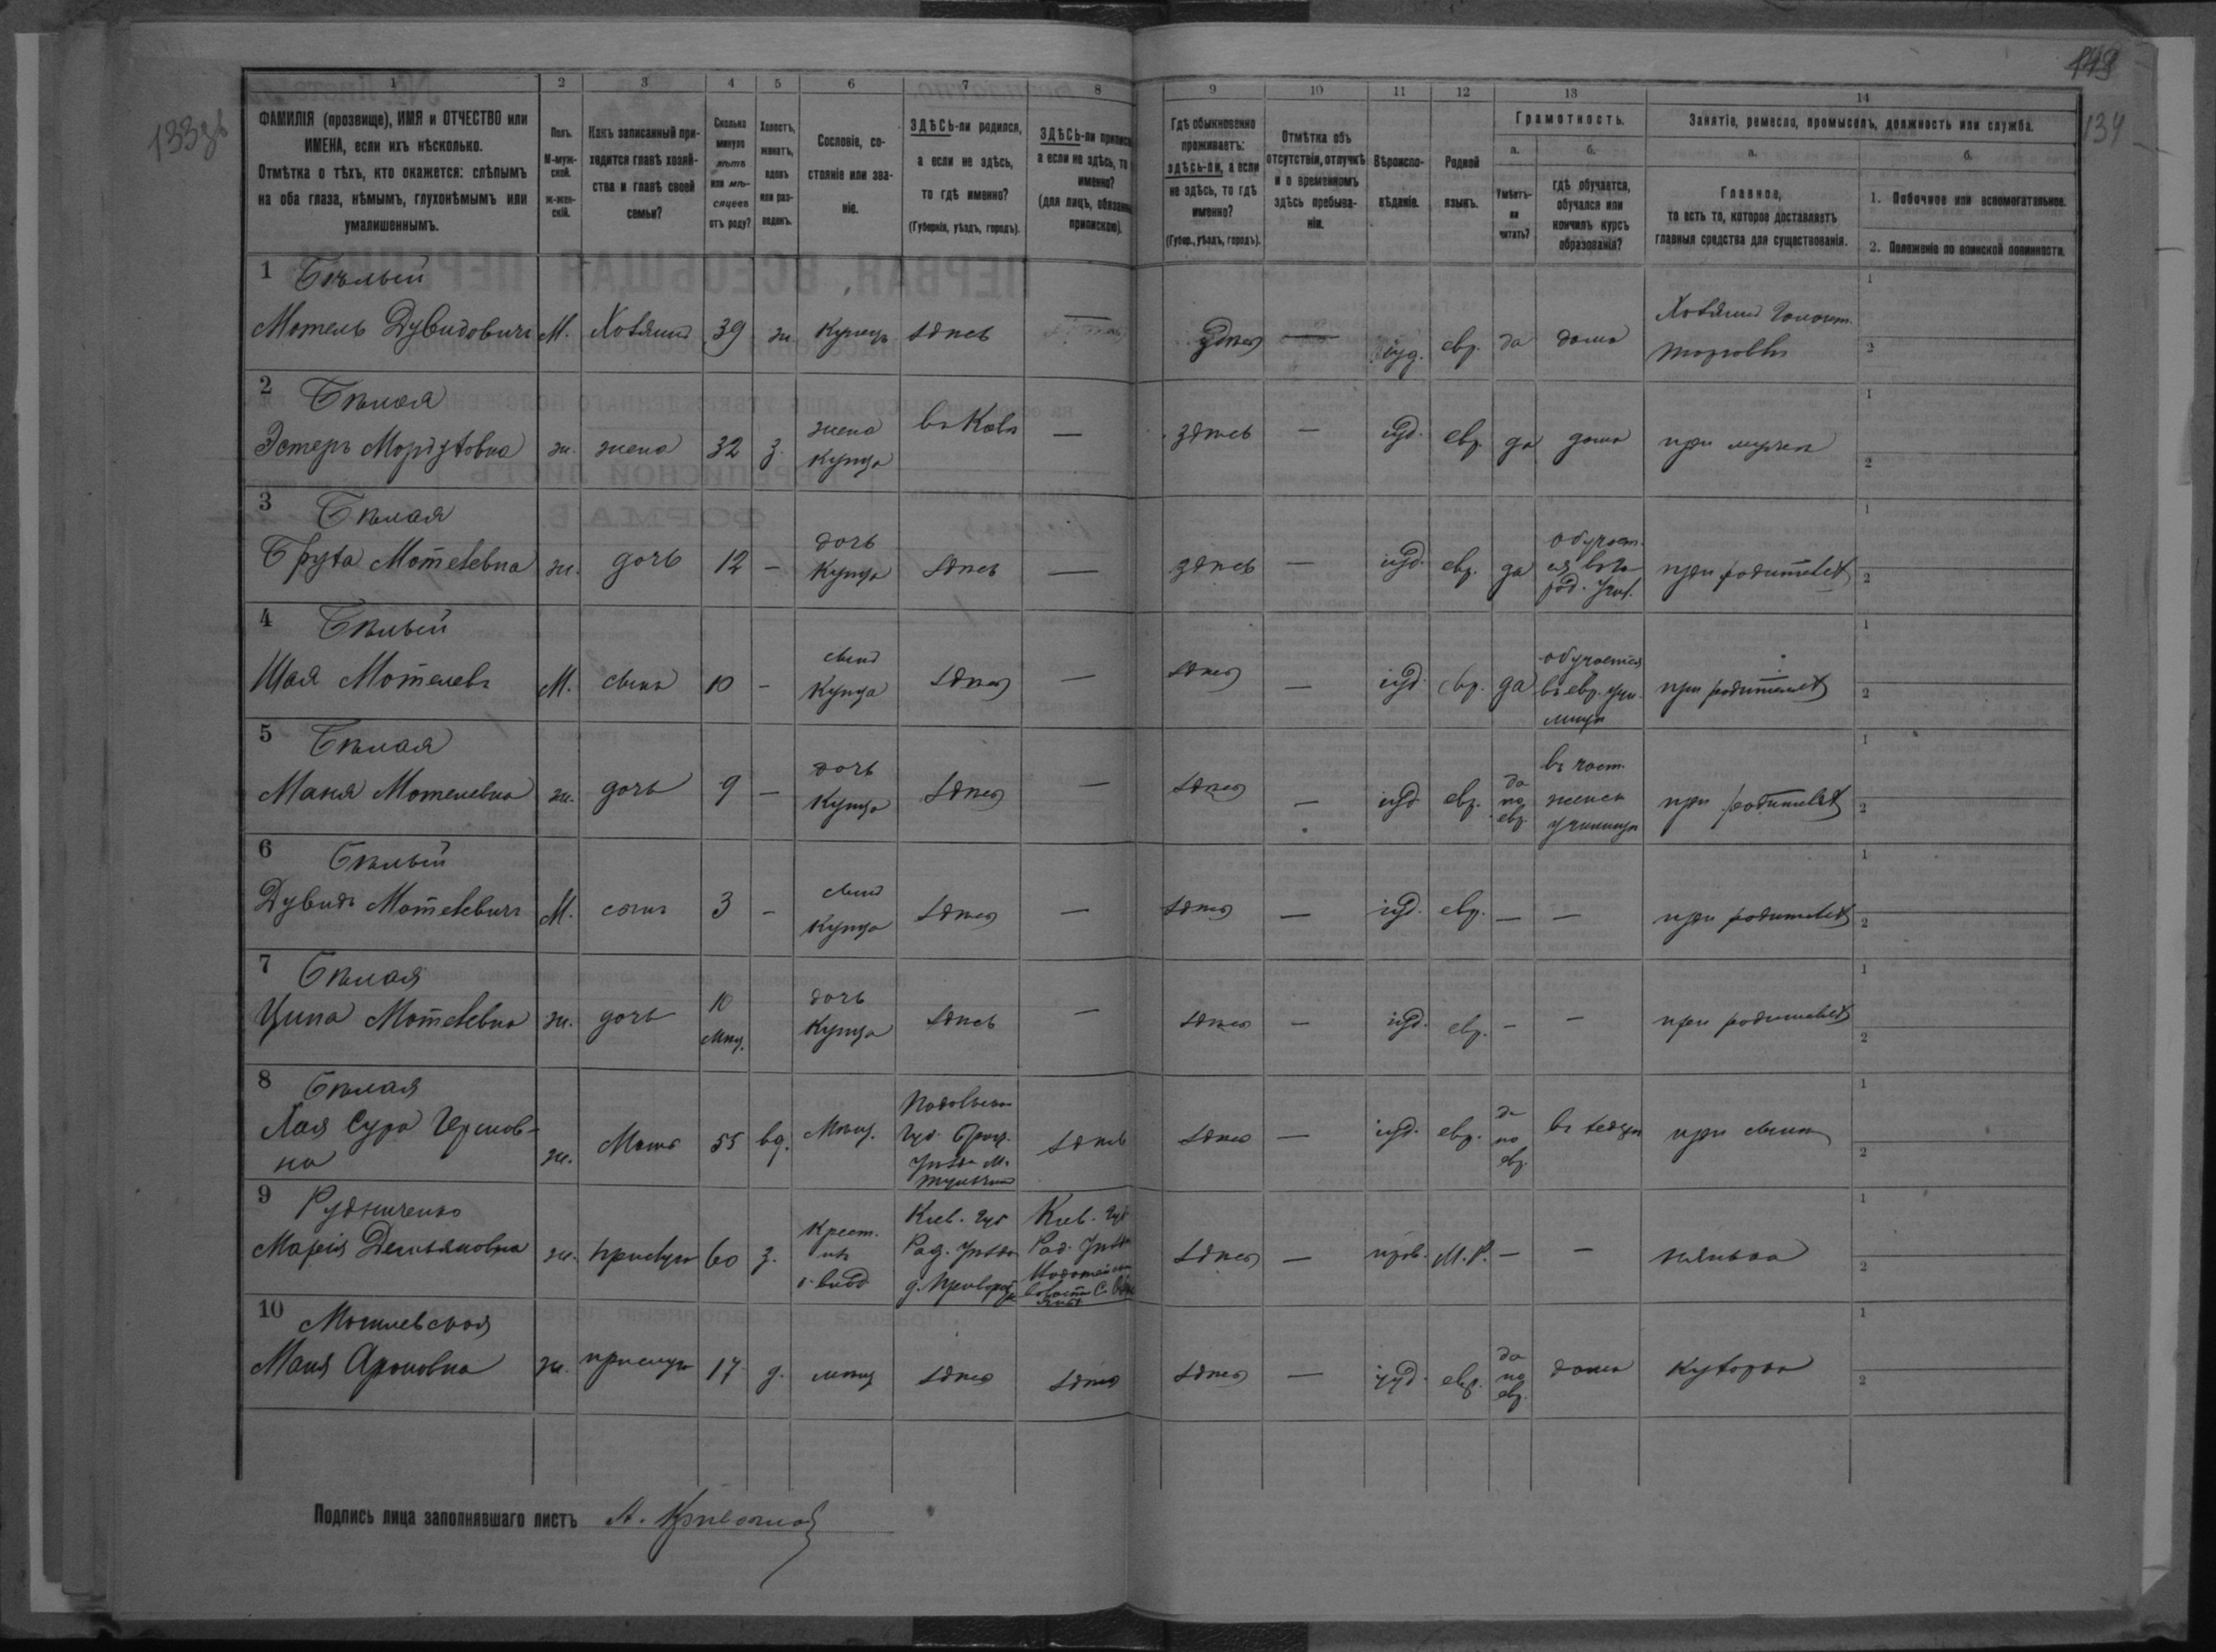 149
133 об
134
1 2 3 4 5 6 7 8 9 10 11 12 13 14
ФАМИЛІЯ (прозвище), ИМЯ и ОТЧЕСТВО или
ИМЕНА, если ихъ нѣсколько.
Отмѣтка о тѣхъ, кто окажется: слѣпымъ
на оба глаза, нѣмымъ, глухонѣмымъ или
умалишеннымъ.
Полъ.
М-муж-
ской.
ж-жен-
скій.
Какъ записанный при-
ходится главѣ хозяй-
ства и главѣ своей
семьи?
Сколько
минуло
лѣтъ
или мѣ-
сяцевъ
отъ роду?
Холостъ,
женатъ,
вдовъ
или раз-
веденъ.
Сословіе, со-
стояніе или зва-
ніе.
ЗДѢСЬ-ли родился,
а если не здѣсь,
то гдѣ именно?
(Губернія, уѣздъ, городъ).
ЗДѢСЬ-ли приписа
а если не здѣсь, то
именно?
(для лицъ, обязанн
припискою).
Гдѣ обыкновенно
проживаетъ:
здѣсь-ли, а если
не здѣсь, то гдѣ
именно?
(Губер., уѣздъ, городъ).
Отмѣтка объ
отсутствіи, отлучкѣ
и о временномъ
здѣсь пребыва-
ніи.
Вѣроиспо-
вѣданіе.
Родной
языкъ.
Грамотность.
а.
Умѣетъ-
ли
читать?
б.
гдѣ обучается,
обучался или
кончилъ курсъ
образованія?
Занятіе, ремесло, промыселъ, должность или служба.
а.
Главное,
то есть то, которое доставляетъ
главныя средства для существованія.
б.
1. Побочное или вспомогательное.
2. Положеніе по воинской повинности.
1 Бѣлый
Мотель Дувидовичъ М. Хозяинъ 39 ж. Купецъ здѣсь — здѣсь — іуд. евр. да дома
Хозяинъ
торговли
1
2
2 Бѣлая
Эстеръ ж. жена 32 з. жена
купца — здѣсь — іуд. евр. да дома при мужѣ
1
2
3 Бѣлая
Бруха Мотелевна ж. дочь 12 — дочь
купца здѣсь — здѣсь — іуд. евр. да обучает.
ся въ го
род. Учил. при родителях
1
2
4 Бѣлый
Шая Мотелевъ М. сынъ 10 — сынъ
купца здѣсь — здѣсь — іуд. евр. да обучается
въ евр. учи-
лищѣ при родителях
1
2
5 Бѣлая
Маня Мотелевна ж. дочь 9 — дочь
купца здѣсь — здѣсь — іуд. евр. да
по
евр. въ част.
женск.
училищѣ при родителях
1
2
6 Бѣлый
Дувидъ Мотелевичъ М. сынъ 3 — сынъ
купца здѣсь — здѣсь — іуд. евр. — — при родителях
1
2
7 Бѣлая
Ципа Мотелевна ж. дочь 10
мѣц. дочь
купца здѣсь — здѣсь — іуд. евр. — — при родителях
1
2
8 Бѣлая
Хая Сура
на ж. Мать 55 вд. Мѣщ. Подольская
губ. Брац.
уѣзда м.
Тульчинъ здѣсь здѣсь — іуд. евр. да
по
евр. въ хедерѣ при сынѣ
1
2
9 Рудниченко
Марія Демьяновна ж. прислуга 60 з. Крест. Кіев. губ
Рад. Уѣзда Кіев. губ
Рад. Уѣзда здѣсь — прав. М.Р. — — нянька
1
2
10 Могилевская
Маня Ароновна ж. прислуга 17 д. мѣщ здѣсь здѣсь здѣсь — іуд. евр. да
по
евр. дома Кухарка
1
2
Подпись лица заполнявшаго листъ А.